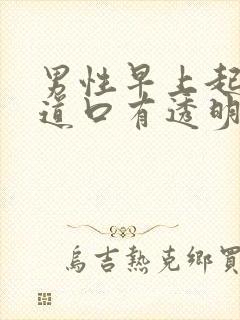 男性早上起
道口有透明
烏吉熱克鄉買